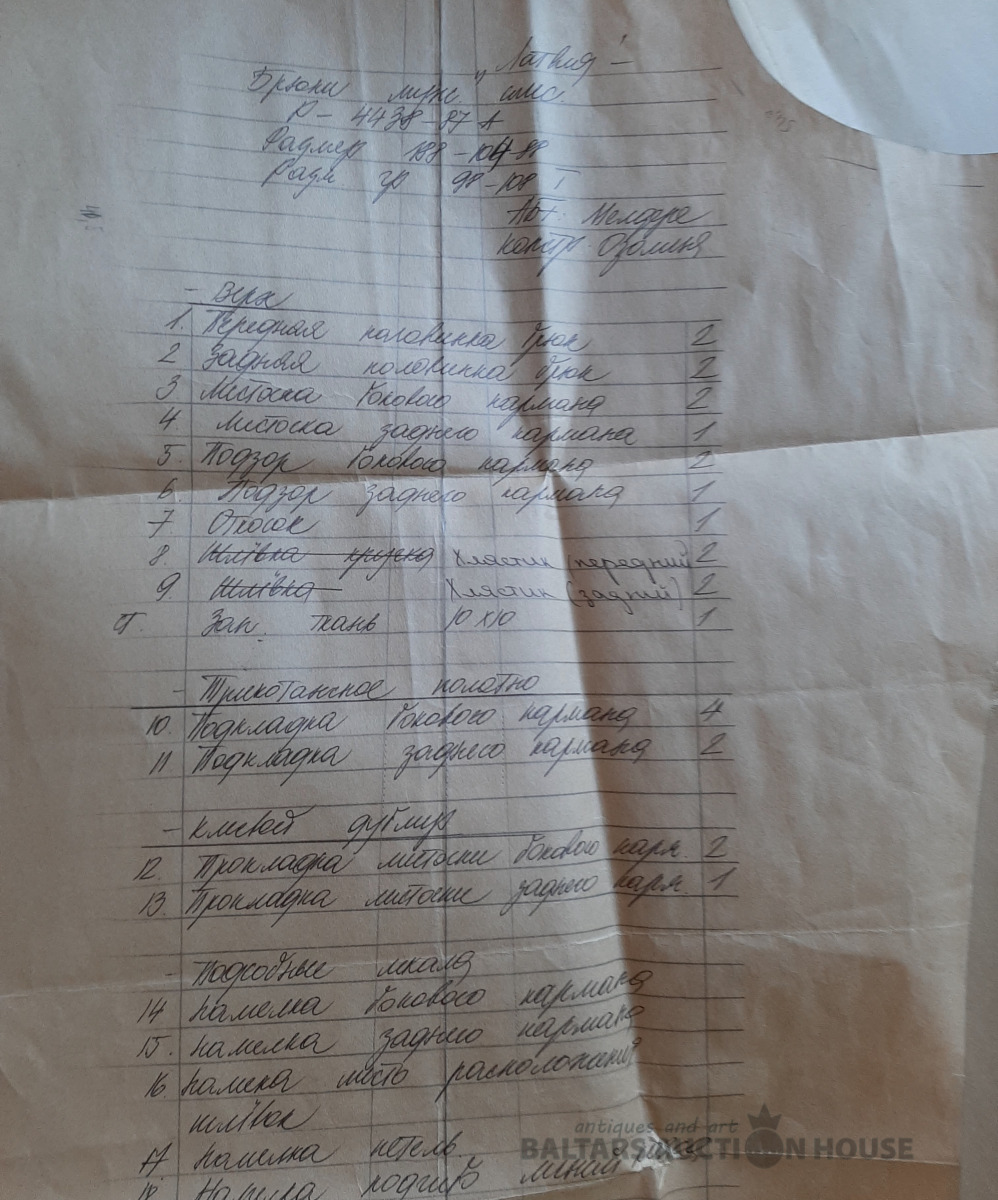 „Латвия"
Брюки муж
Р- 4438-87 А
Размер 188-104-88
Разм. гр 98-108 I
Авт. Мелдере
констр Озолиня
- Верх
1. Передная половинка брюк 2
2 Задная половинка брюк 2
3 Листоска бокового кармана 2
4 Листоска заднего кармана 1
5. Подзор бокового кармана 2
6. Подзор заднего кармана 1
7 Откосок 1
8. Шлёвка Хлястик (передний) 2
9. Шлёвка Хлястик (задний) 2
Зап. ткань 10х10 1
- Трикотажное полотно
10. Подкладка бокового кармана 4
11 Подкладка заднего кармана 2
- Клевой дублир
12. Прокладка листоски бокового карм. 2
13. Прокладка листоски заднего карм. 1
- Подсобные лекала
14 Намелка бокового кармана
15. Намелка заднего кармана
16. Намелка место расположения
шлёвок
17 Намелка петель
18. линий
antiques and art
BALTARS AUCTION HOUSE